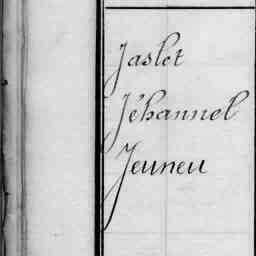 Jaslet
Jéhannel
Jeuneu